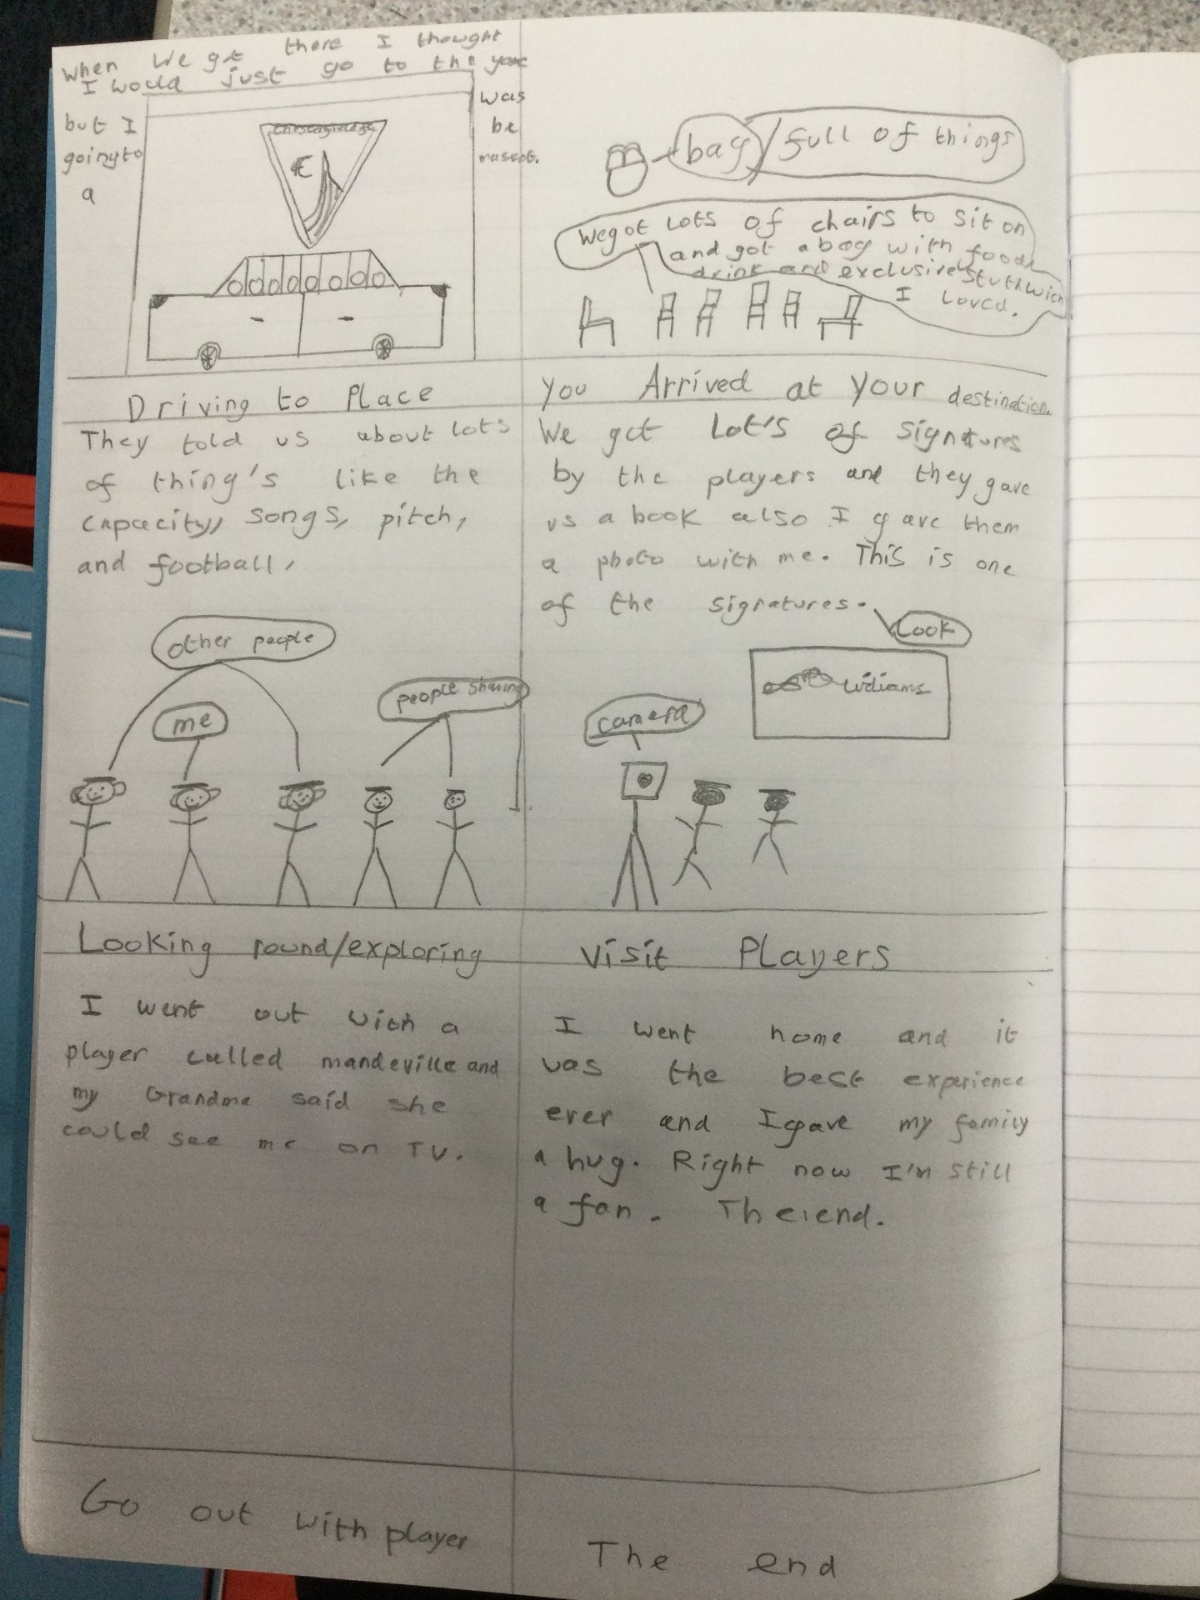 When we get there I thought
I would just go to the game
but I was
going to be
a mascot.
Driving to Place
bag / full of things
We got Lots of chairs to sit on
and got a bag with food,
drink and exclusive stuff wich
I loved.
You Arrived at your destination.
They told us about lots
of thing's like the
capacity, songs, pitch,
and football,
other people
me
people sharing
Looking round/exploring
We got Lot's of signatures
by the players and they gave
us a book also I gave them
a photo with me. This is one
of the signatures.
Look
Williams
camera
Visit PLayers
I went out with a
player called mandeville and
my Grandma said she
could see me on TV.
Go out with player
I went home and it
was the best experience
ever and I gave my family
a hug. Right now I'm still
a fan. The end.
The end